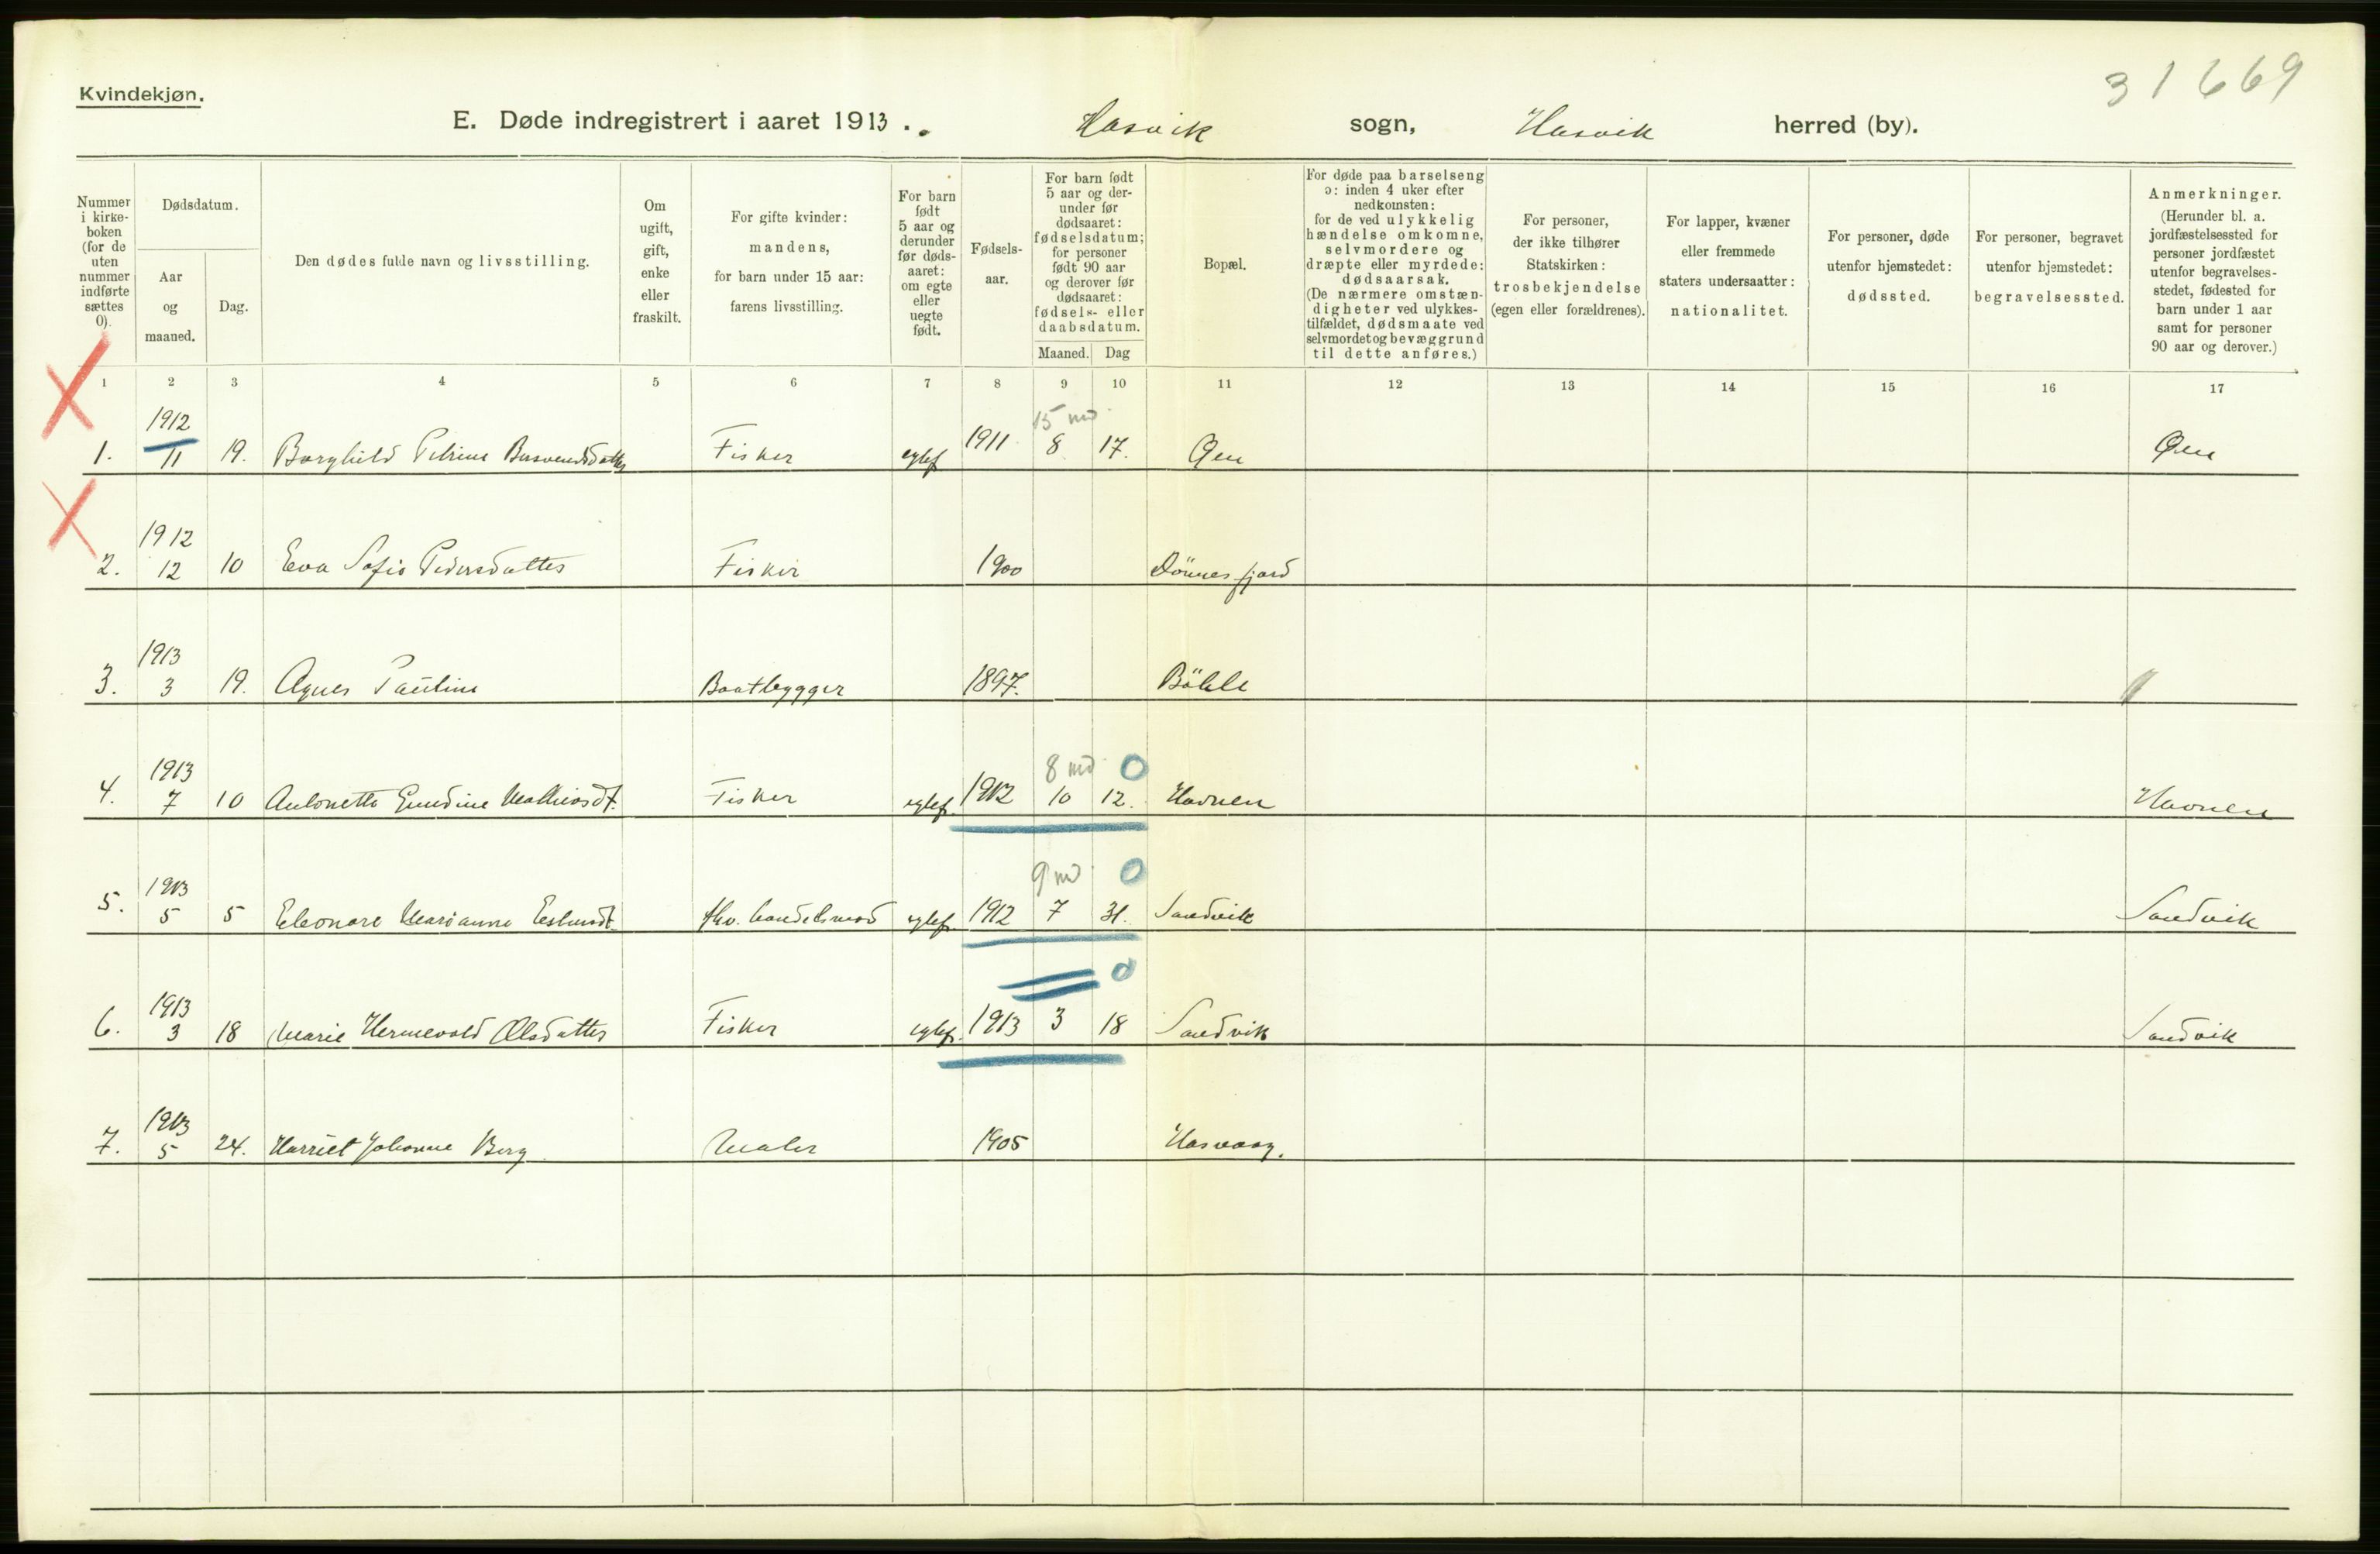 Kvindekjøn.
31669
E. Døde indregistrert i aaret 1913. Hasvik sogn, Hasvik herred (by).
Nummer i kirkeboken (for de uten nummer indførte sættes 0).
Dødsdatum.
Aar og maaned.
Dag.
Den dødes fulde navn og livsstilling.
Om ugift, gift, enke eller fraskilt.
For gifte kvinder: mandens, for barn under 15 aar: farens livsstilling.
For barn født 5 aar og derunder før dødsaaret: om egte eller uegte født.
Fødselsaar.
For barn født 5 aar og derunder før dødsaaret: fødselsdatum; for personer født 90 aar og derover før dødsaaret: fødsels- eller daabsdatum.
Maaned. Dag
Bopæl.
For døde paa barselseng ɔ: inden 4 uker efter nedkomsten: for de ved ulykkelig hændelse omkomne, selvmordere og dræpte eller myrdede: dødsaarsak. (De nærmere omstændigheter ved ulykkestilfældet, dødsmaate ved selvmordet og bevæggrund til dette anføres.)
For personer, der ikke tilhører Statskirken: trosbekjendelse (egen eller forældrenes).
For lapper, kvæner eller fremmede staters undersaatter: nationalitet.
For personer, døde utenfor hjemstedet: dødssted.
For personer, begravet utenfor hjemstedet: begravelsessted.
Anmerkninger. (Herunder bl. a. jordfæstelsessted for personer jordfæstet utenfor begravelsesstedet, fødested for barn under 1 aar samt for personer 90 aar og derover.)
1 2 3 4 5 6 7 8 9 10 11 12 13 14 15 16 17
1912 15 md
1. 11 19. Borghild Petrine Fisker egtef 1911 8 17. Øen Øen
1912
2. 12 10 Eva Sofie Pedersdatter Fisker 1900 Dönnesfjord
1913
3. 3 19. Agnes Pauline Baatbygger 1897. Böhle
1913 8 md 0
4. 7 10 Antonette Gundine Mathiasdt. Fisker egtef. 1912 10 12. Havnen Havnen
1913 9 md 0
5. 5 5 Eleonore Marianne fhv. handelsmand egtef. 1912 7 31. Sandvik Sandvik
1913 0
6. 3 18 Marie Hermevold Olsdatter Fisker egtef. 1913 3 18 Sandvik Sandvik
1913
7. 5 24. Harriet Johanne Berg Maler 1905 Hasvaag.